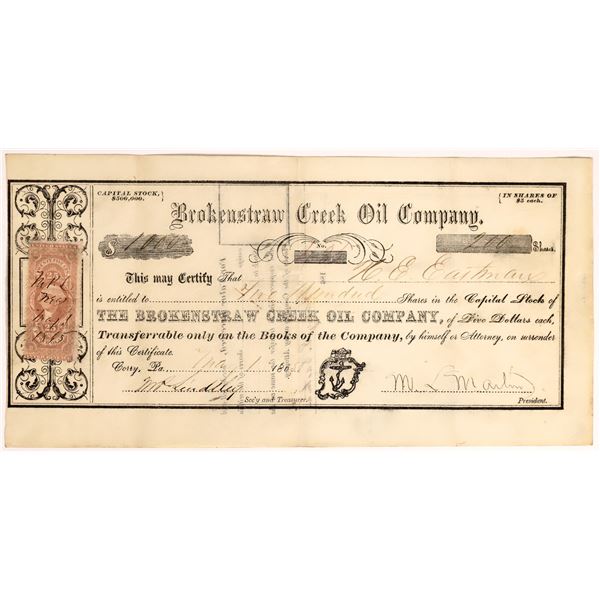 CAPITAL STOCK, $500,000.
IN SHARES OF $5 each.
Brokenstraw Creek Oil Company,
$ 1000 No. 200 Shares
This may Certify That H. E. Eastman
is entitled to Two Hundred Shares in the Capital Stock of
THE BROKENSTRAW CREEK OIL COMPANY, of Five Dollars each,
Transferrable only on the Books of the Company, by himself or Attorney, on surrender
of this Certificate.
Corry, Pa. May 1 1865
Sec'y and Treasurer.
M. L. Martin
President.